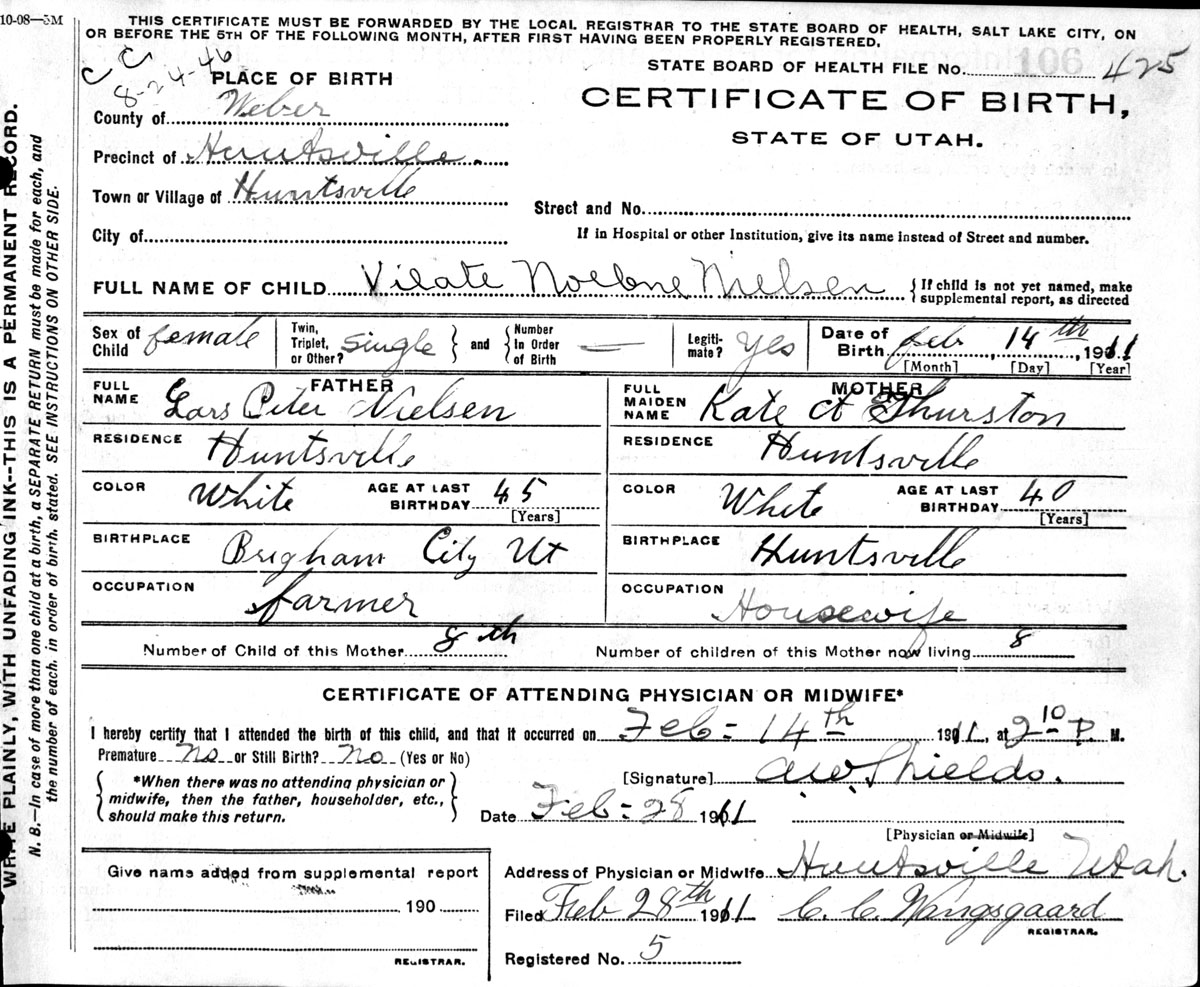 10-08—5M
THIS CERTIFICATE MUST BE FORWARDED BY THE LOCAL REGISTRAR TO THE STATE BOARD OF HEALTH, SALT LAKE CITY, ON
OR BEFORE THE 5TH OF THE FOLLOWING MONTH, AFTER FIRST HAVING BEEN PROPERLY REGISTERED.
WRITE PLAINLY, WITH UNFADING INK--THIS IS A PERMANENT RECORD.
N. B.—In case of more than one child at a birth, a SEPARATE RETURN must be made for each, and
the number of each, in order of birth, stated. SEE INSTRUCTIONS ON OTHER SIDE.
C C
8-24-46
STATE BOARD OF HEALTH FILE No. 106 425
CERTIFICATE OF BIRTH,
STATE OF UTAH.
PLACE OF BIRTH
County of Weber
Precinct of Huntsville.
Town or Village of Huntsville
Street and No.
City of
If in Hospital or other Institution, give its name instead of Street and number.
FULL NAME OF CHILD Vilate Nielsen { If child is not yet named, make
supplemental report, as directed
Sex of Child female Twin, Triplet, or Other? Single } and { Number In Order of Birth — Legiti-mate? Yes Date of Birth Feb 14th, 1911
[Month] [Day] [Year]
FATHER
FULL NAME Lars Peter Nielsen
RESIDENCE Huntsville
COLOR White AGE AT LAST BIRTHDAY 45
[Years]
BIRTHPLACE Brigham City Ut
OCCUPATION farmer
MOTHER
FULL MAIDEN NAME Kate A Thurston
RESIDENCE Huntsville
COLOR White AGE AT LAST BIRTHDAY 40
[Years]
BIRTHPLACE Huntsville
OCCUPATION Housewife
Number of Child of this Mother 8th Number of children of this Mother now living 8
CERTIFICATE OF ATTENDING PHYSICIAN OR MIDWIFE*
I hereby certify that I attended the birth of this child, and that it occurred on Feb= 14th 1911, at 2 10 P. M.
Premature No or Still Birth? No (Yes or No)
{ *When there was no attending physician or
midwife, then the father, householder, etc.,
should make this return. }
[Signature] Shields.
Date Feb= 28 1911
[Physician or Midwife]
Give name added from supplemental report
190
REGISTRAR.
Address of Physician or Midwife Huntsville Utah.
Filed Feb 28th 1911 C. C. Wangsgaard
REGISTRAR.
Registered No. 5